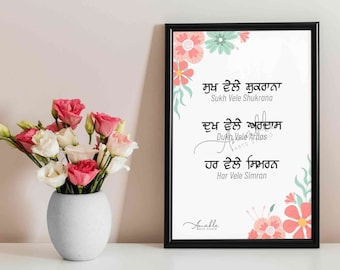 ਸੁਖ ਵੇਲੇ ਸ਼ੁਕਰਾਨਾ
Sukh Vele Shukrana
ਦੁਖ ਵੇਲੇ ਅਰਦਾਸ
Dukh Vele Ardas
ਹਰ ਵੇਲੇ ਸਿਮਰਨ
Har Vele Simran